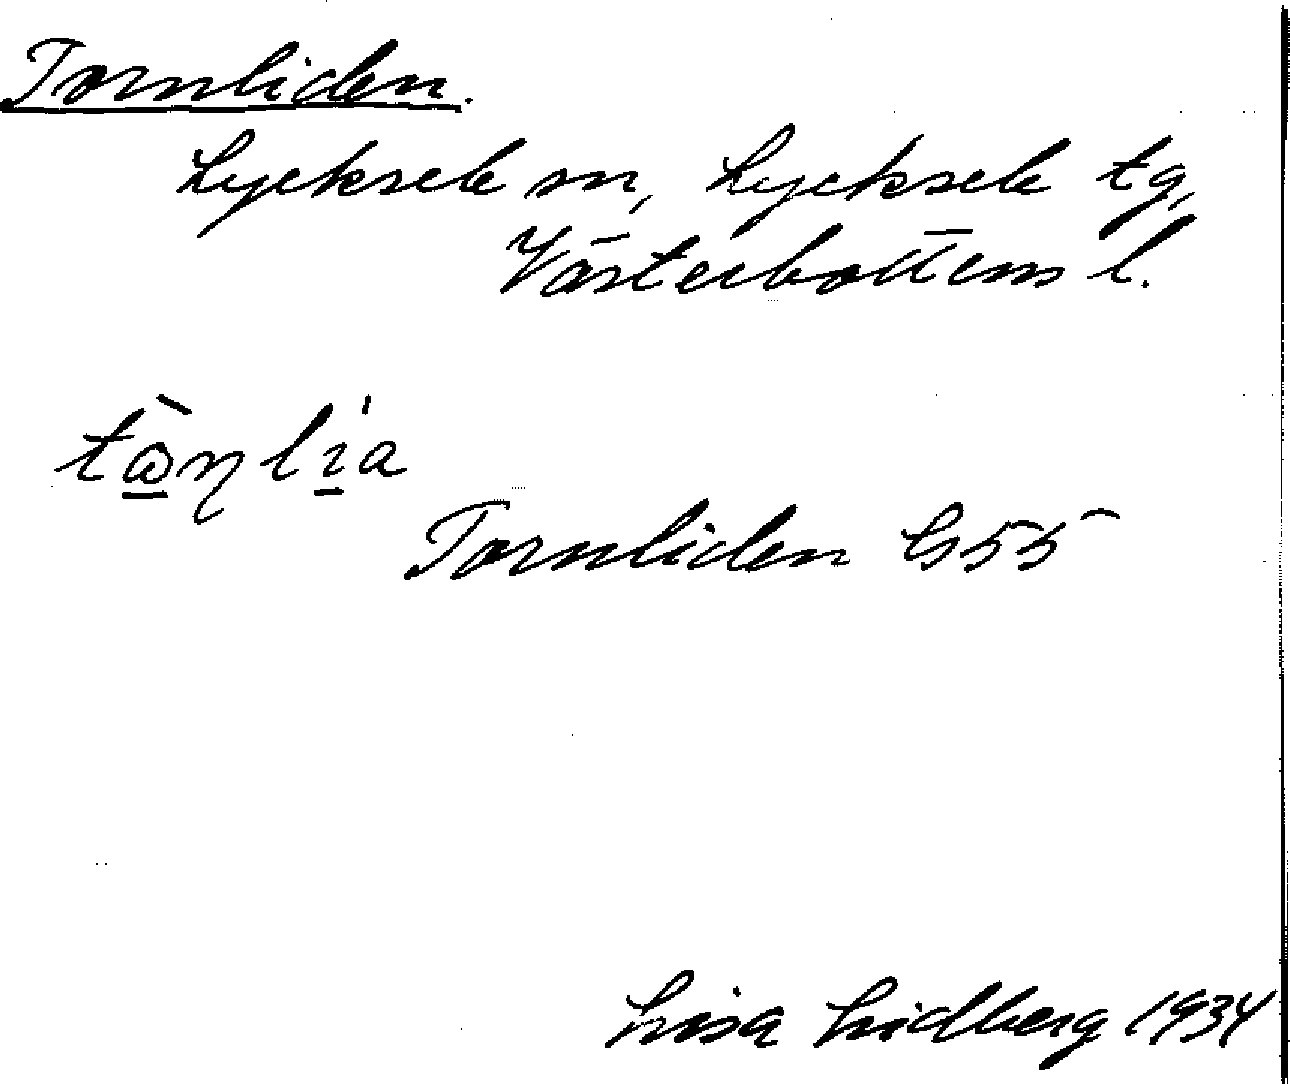 Tornliden.
Lycksele sn, Lycksele tg,
Västerbottens l.
tὼ̱ɳ lı̱́a
Tornliden G55
Lisa Lidberg 1934